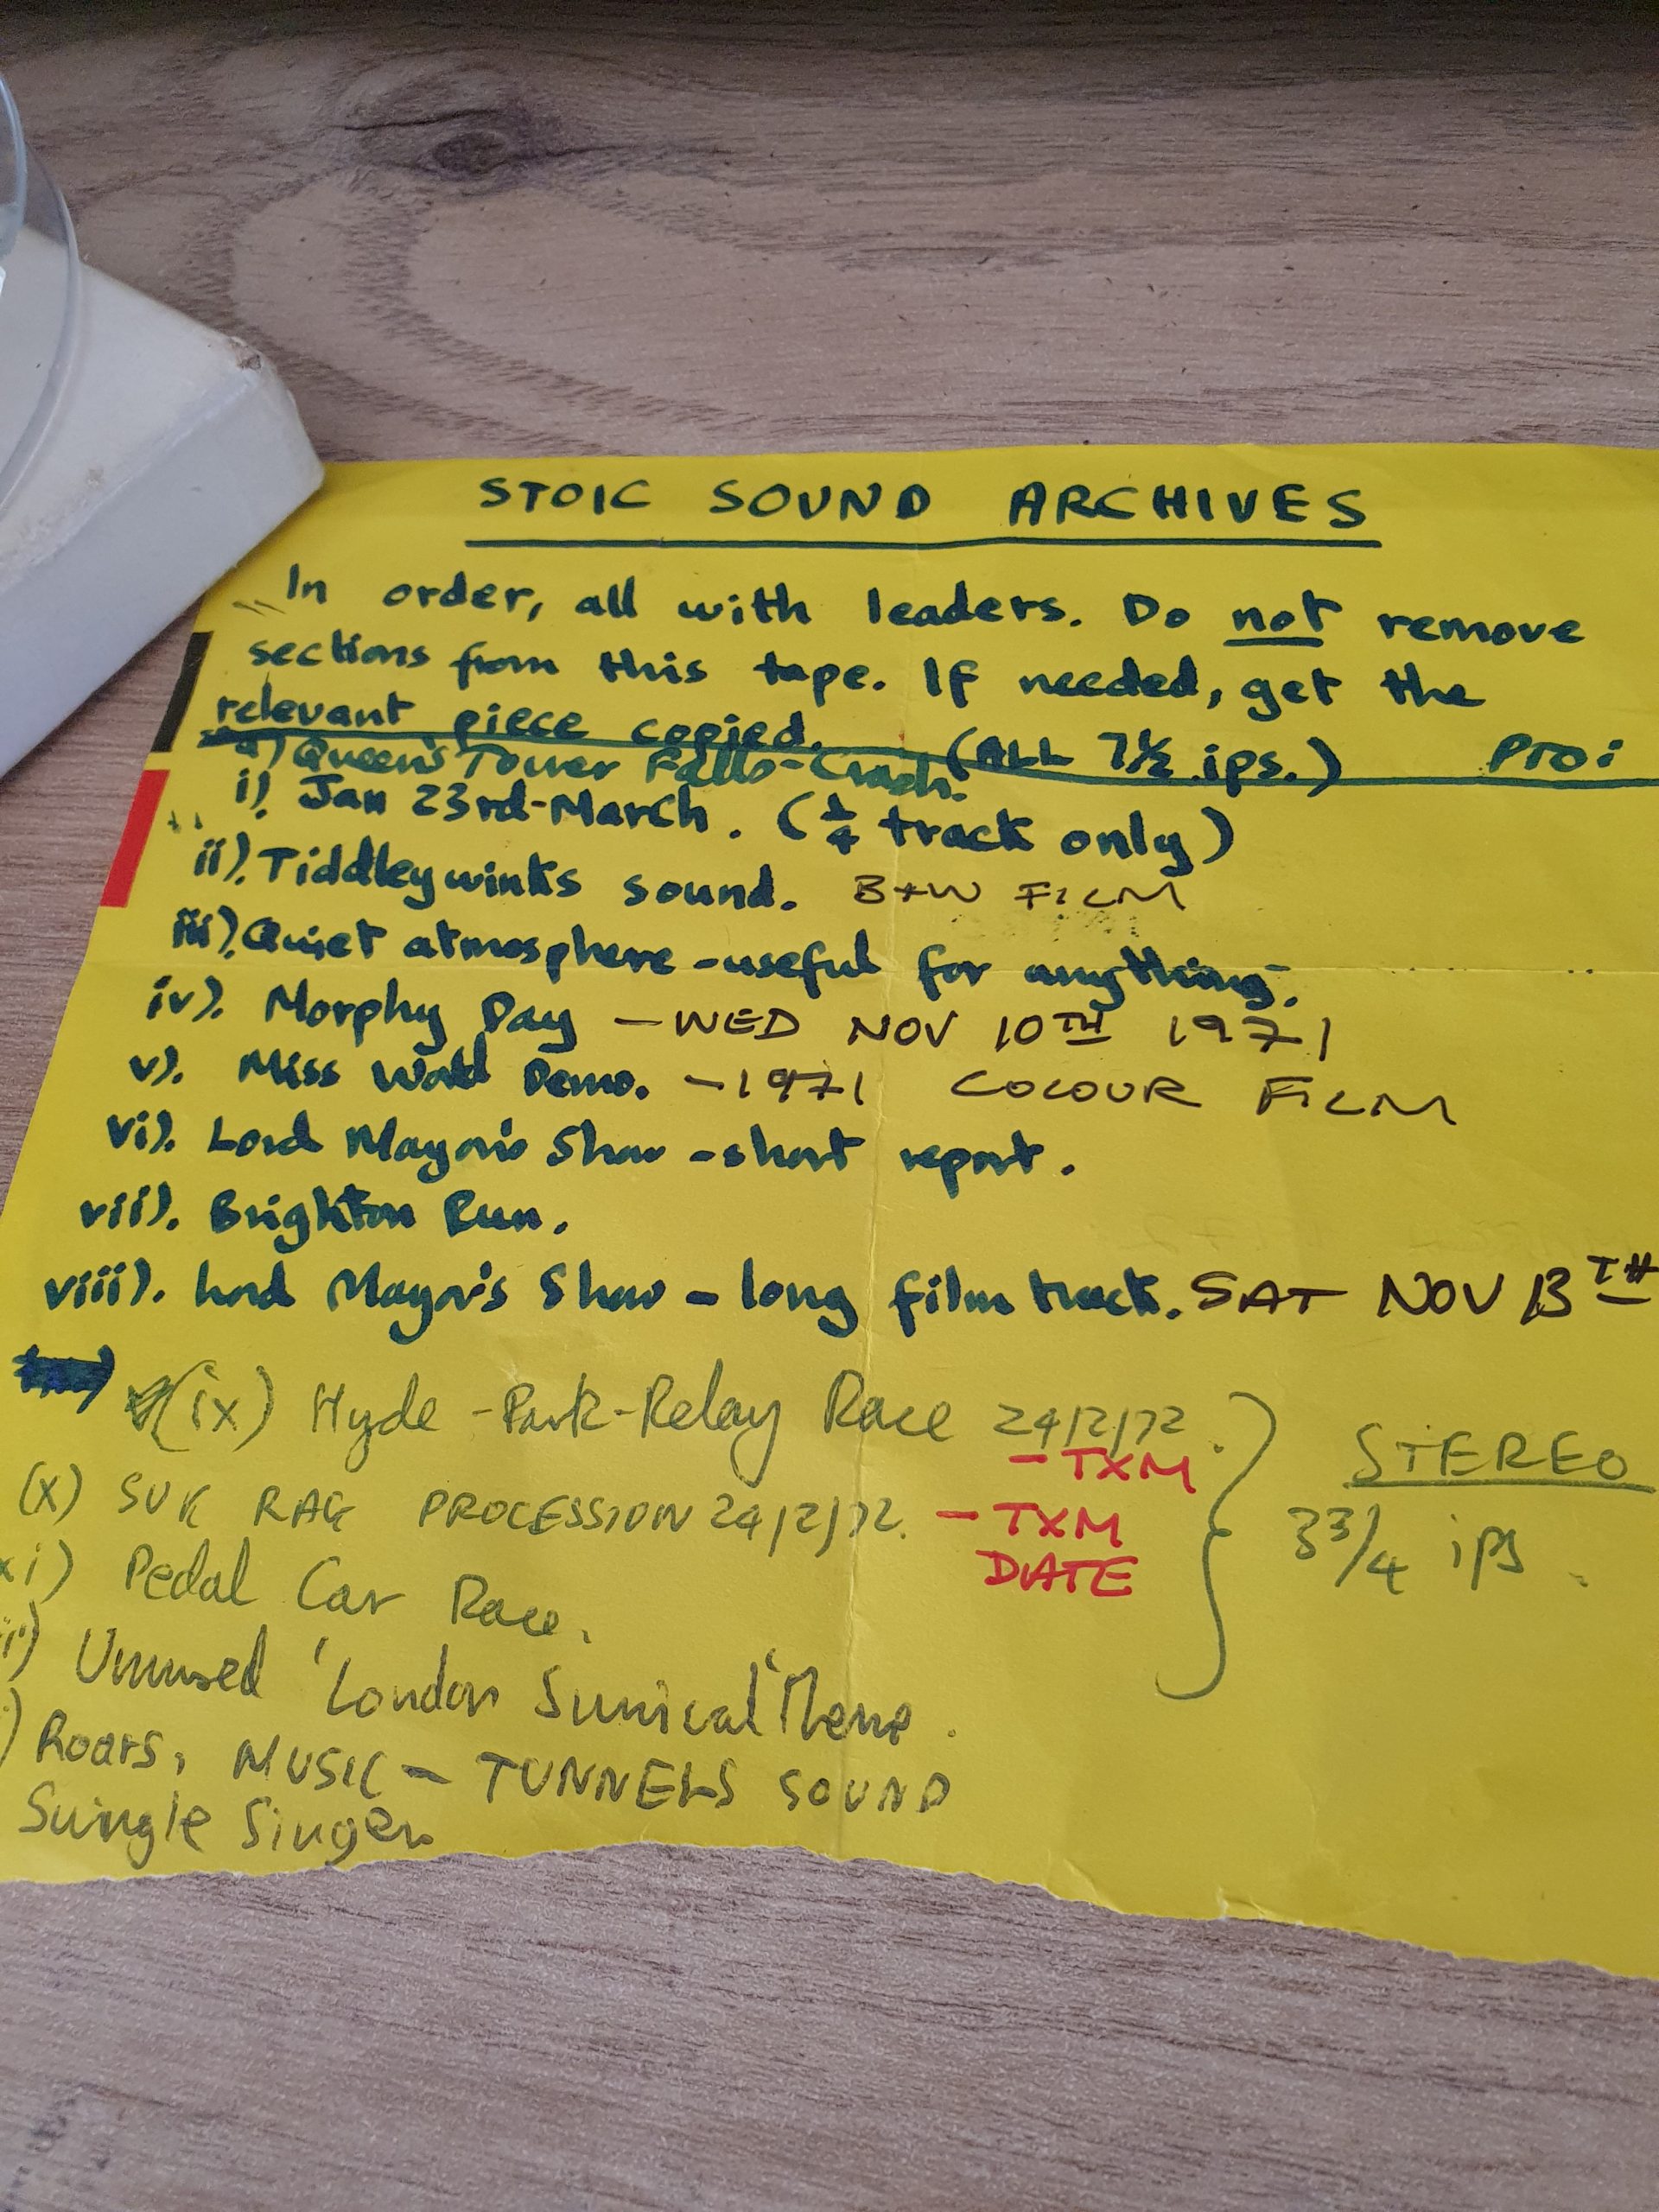 STOIC SOUND ARCHIVES
In order, all with leaders. Do not remove
sections from this tape. If needed, get the
relevant piece copied. (ALL 7½ ips.) PTO
a) Queen's Tower Falls-Crash.
i). Jan 23rd-March. (¼ track only)
ii). Tiddleywinks sound. B+W FILM
iii). Quiet atmosphere - useful for anything.
iv). Morphy Day - WED NOV 10TH 1971
v). Miss World Demo. - 1971 COLOUR FILM
vi). Lord Mayor's Show - short report.
vii). Brighton Run.
viii). Lord Mayor's Show - long film track. SAT NOV 13TH
(ix) Hyde-Park-Relay Race 24/2/72. - TXM
STEREO
(x) SUK RAG PROCESSION 24/2/72. - TXM DATE
3 3/4 ips.
xi) Pedal Car Race.
i) Unused 'London Survival' Theme.
) Roars, MUSIC - TUNNELS SOUND
Swingle Singers